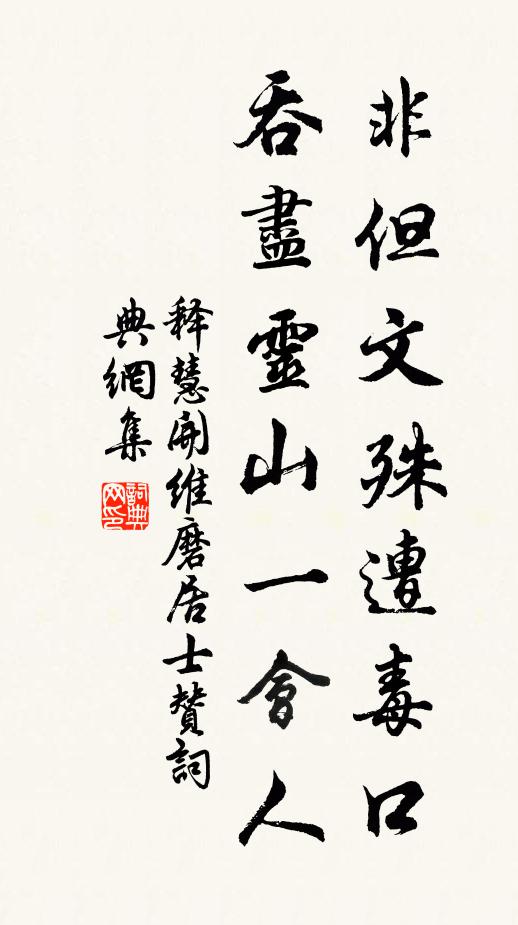 非但文殊遭毒口
吞盡靈山一會人
释慧開維磨居士贊詞
典網集
詞典网印